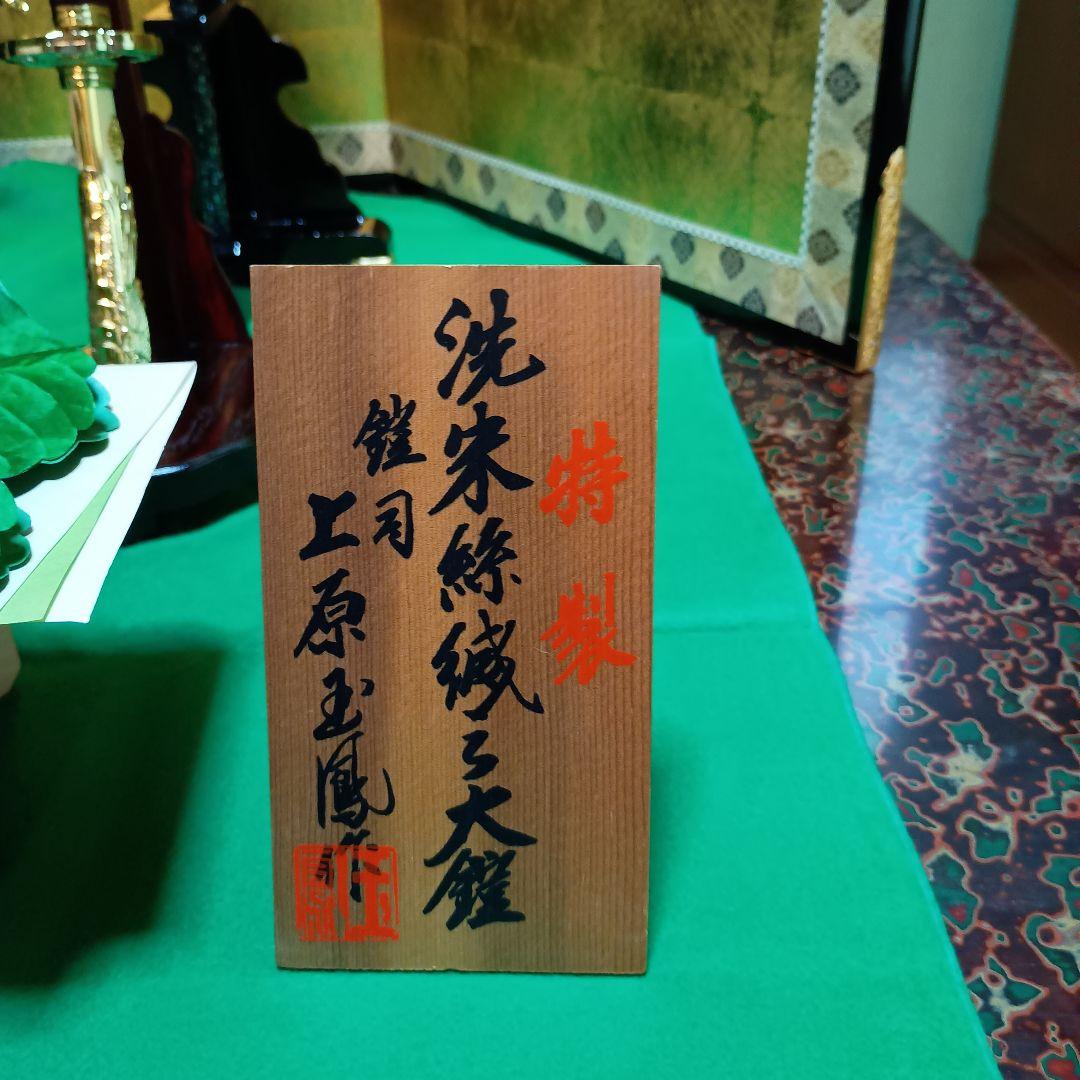 特製
洗朱絲縅之大鎧
鎧司
上原玉鳳作